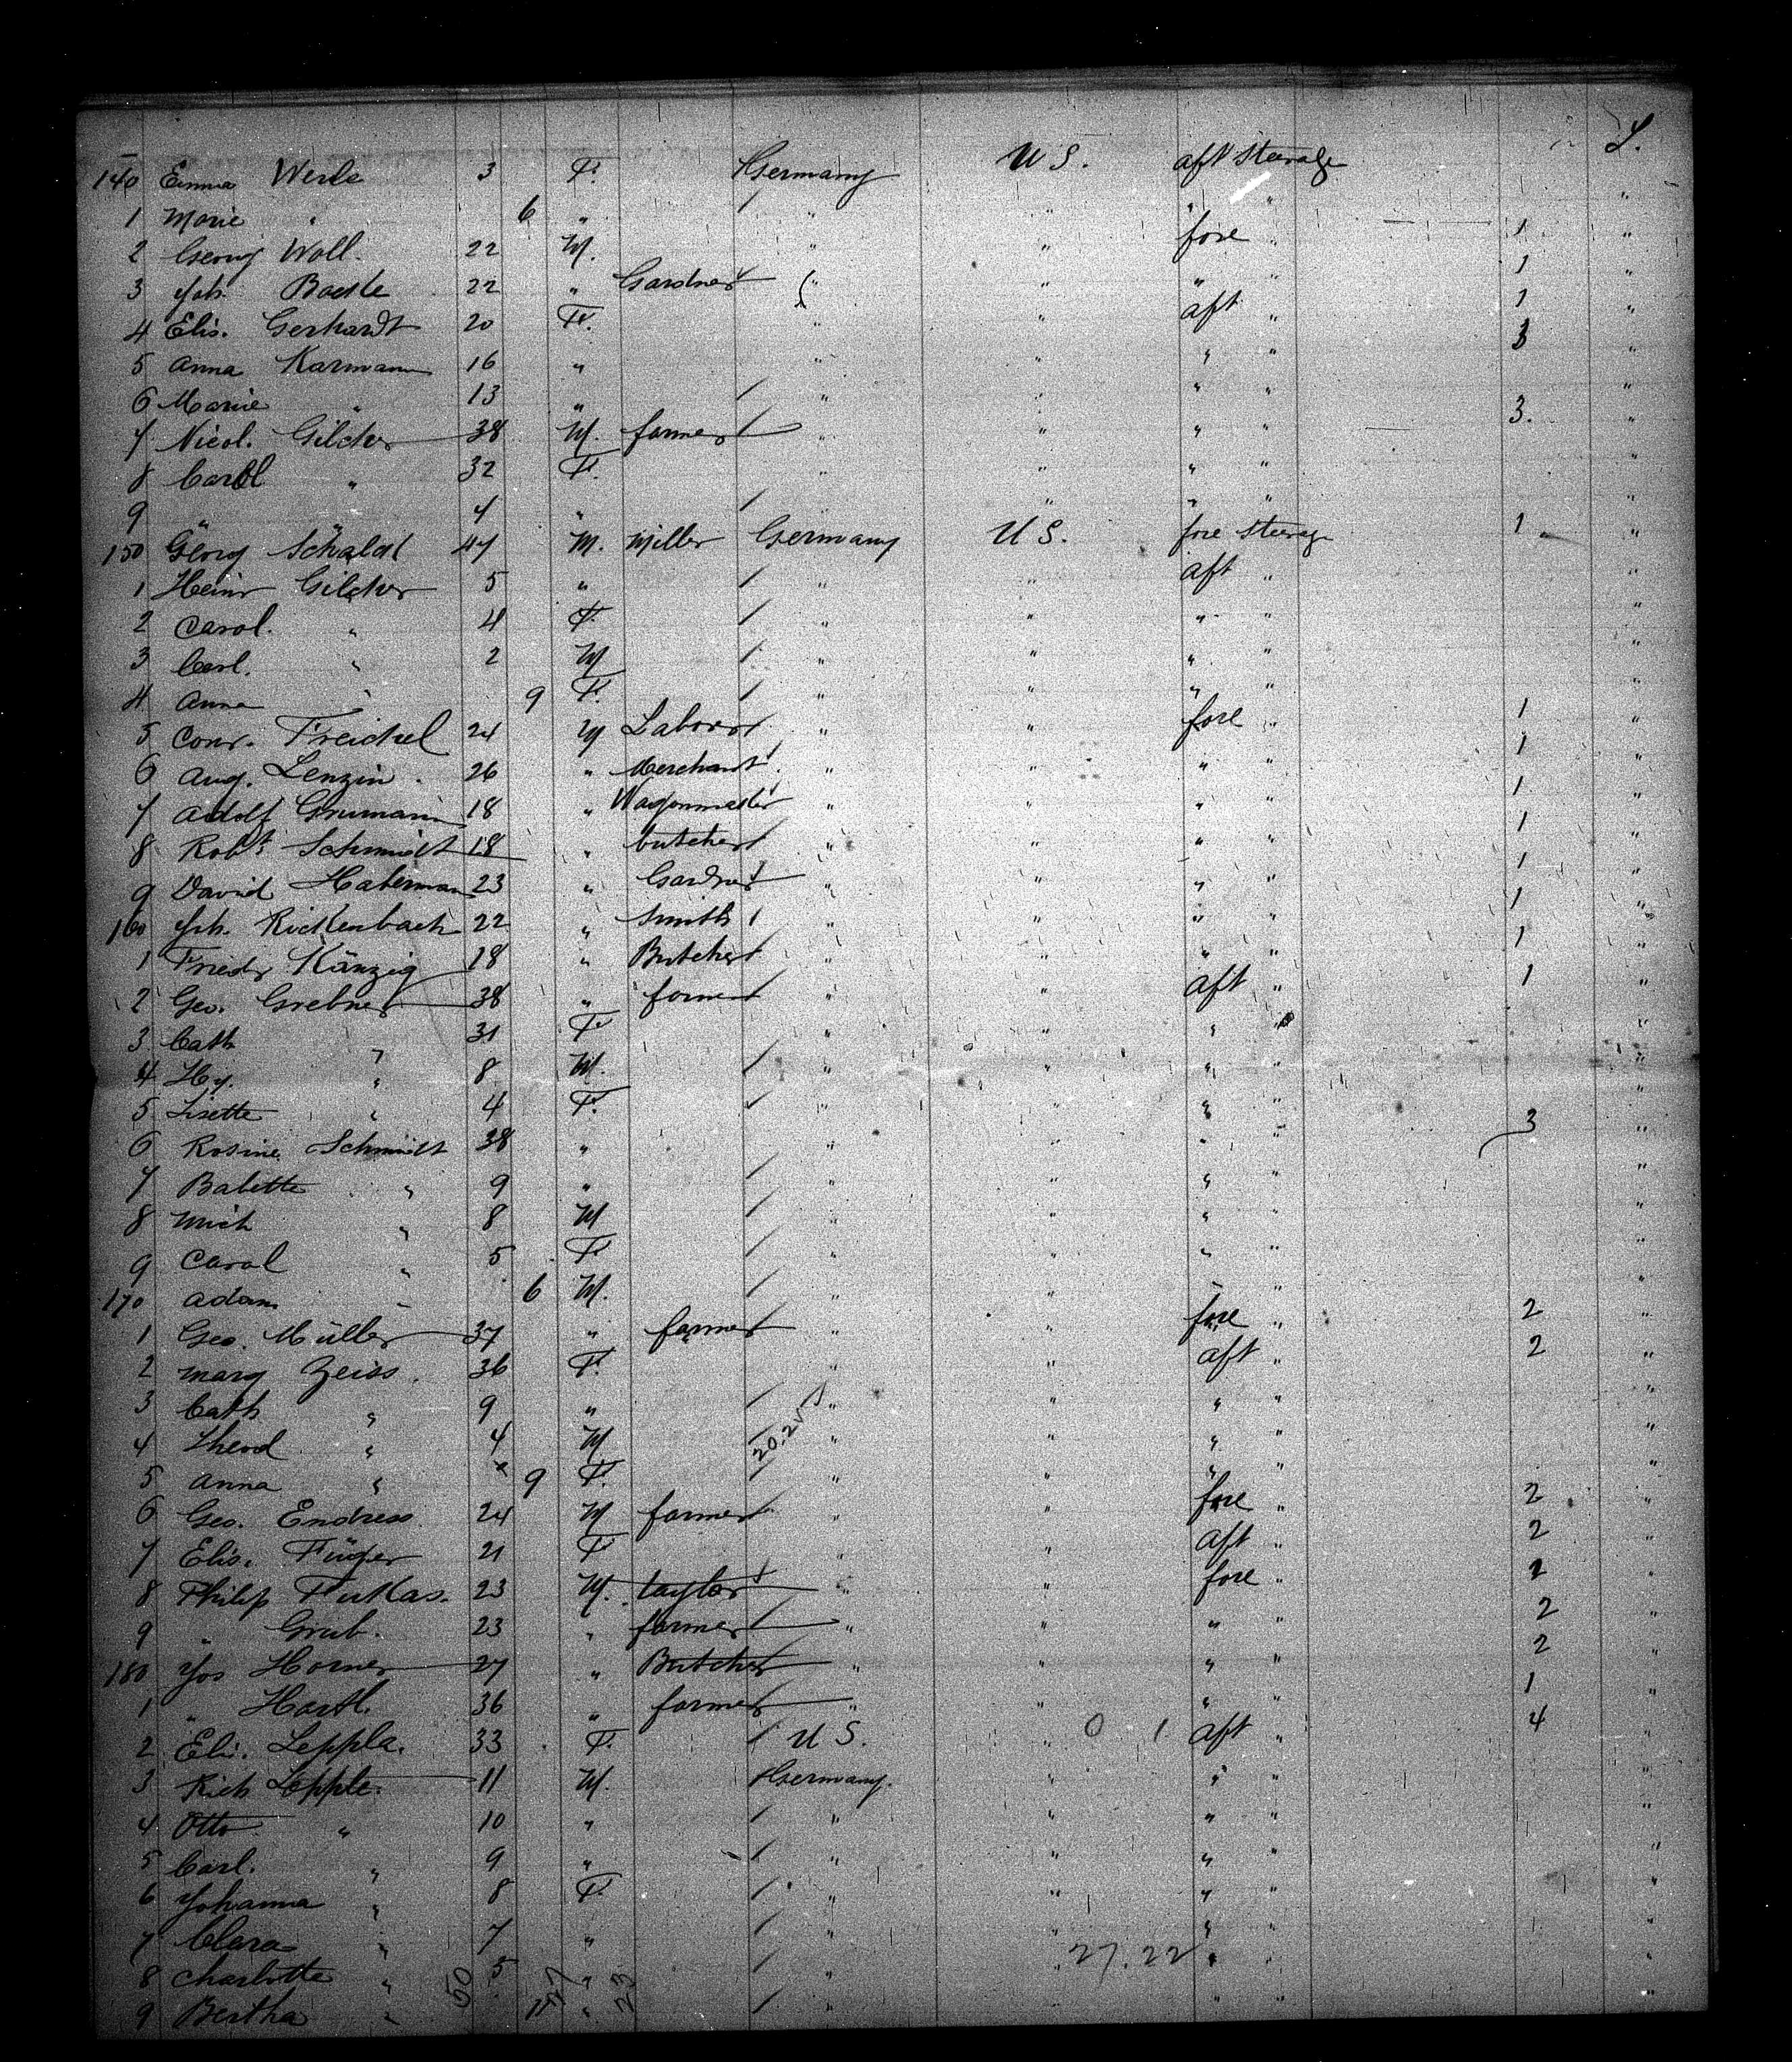 L.
140 Emma Werle 3 F. Germany U S. aft Steerage
1 Marie " 6 " " " " "
2 Georg Woll. 22 M. " " fore " 1 "
3 Joh. 22 " Gardner " " " " 1 "
4 Elis. Gerhardt 20 F. " " aft " 1 "
5 Anna Karmann 16 " " " " " 3 "
6 Marie " 13 " " " " " "
7 Nicol. Gilcher 38 M. farmer " " " " 3. "
8 Carol " 32 F. " " " " "
9 " " 4 " " " " " "
150 Georg Schaldt 47 M. Miller Germany U S. fore Steerage 1 "
1 Heinr Gilcher 5 " " " aft " "
2 Carol. " 4 F. " " " " "
3 Carl. " 2 M " " " " "
4 Anna " 9 F. " " " " "
5 Conr. Freickel 24 M Laborer " " fore " 1 "
6 Aug. Lenzin. 26 " Merchant " " " " 1 "
7 Adolf Grumann 18 " Wagonmaster " " " " 1 "
8 Robt. Schmidt 18 " butcher " " " " 1 "
9 David Haberman 23 " Gardner " " " " 1 "
160 Joh. Rickenbach 22 " Smith " " " " 1 "
1 Friedr Känzig 18 " Butcher " " " " 1 "
2 Geo. Grebner 38 " farmer " " aft " 1 "
3 Cath " 31 F " " " " "
4 Hy. " 8 M. " " " " "
5 Lisette " 4 F. " " " " "
6 Rosine Schmidt 38 " " " " " 3 "
7 Babette " 9 " " " " " "
8 Mich " 8 M " " " " "
9 Carol " 5 F " " " " "
170 Adam " 6 M. " " " " "
1 Geo. Müller 37 " farmer " " fore " 2 "
2 Marg Zeiss. 36 F. " " aft " 2 "
3 Cath " 9 " " " " " "
4 " 4 M 20.2 " " " " "
5 Anna " 9 F. " " " " "
6 Geo. Endress 24 M farmer " " fore " 2 "
7 Elis. Füger 21 F " " aft " 2 "
8 Philip Furkas. 23 M. taylor " " fore " 2 "
9 " Grub. 23 " farmer " " " " 2 "
180 Jos Horner 27 " Butcher " " " " 2 "
1 " Hartl. 36 " farmer " " " " 1 "
2 Elis. Leppla. 33 F. U S. " 0 1 aft " 4 "
3 Rich Lepple. 11 M. Germany. " " " "
4 Otto " 10 " " " " " "
5 Carl. " 9 " " " " " "
6 Johanna " 8 F. " " " " "
7 Clara " 7 " " " " " "
8 Charlotte " 5 " " 27.22 " " "
9 Bertha " 11 " " " " "
50 27 23